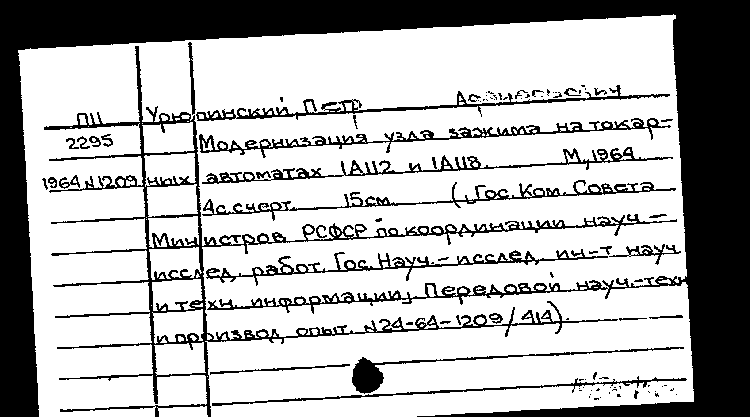 П11 Урюпинский, Петр Афанасьевич
2295 Модернизация узла зажима на токар-
1964 N1209 ных автоматах 1А112 и 1А118. М., 1964.
4с. с черт. 15см. (Гос. Ком. Совета
Министров РСФСР по координации науч.-
исслед. работ. Гос. Науч.-исслед. ин-т науч.
и техн. информации. Передовой науч.-техн
и производ. опыт. N24-64-1209/414).